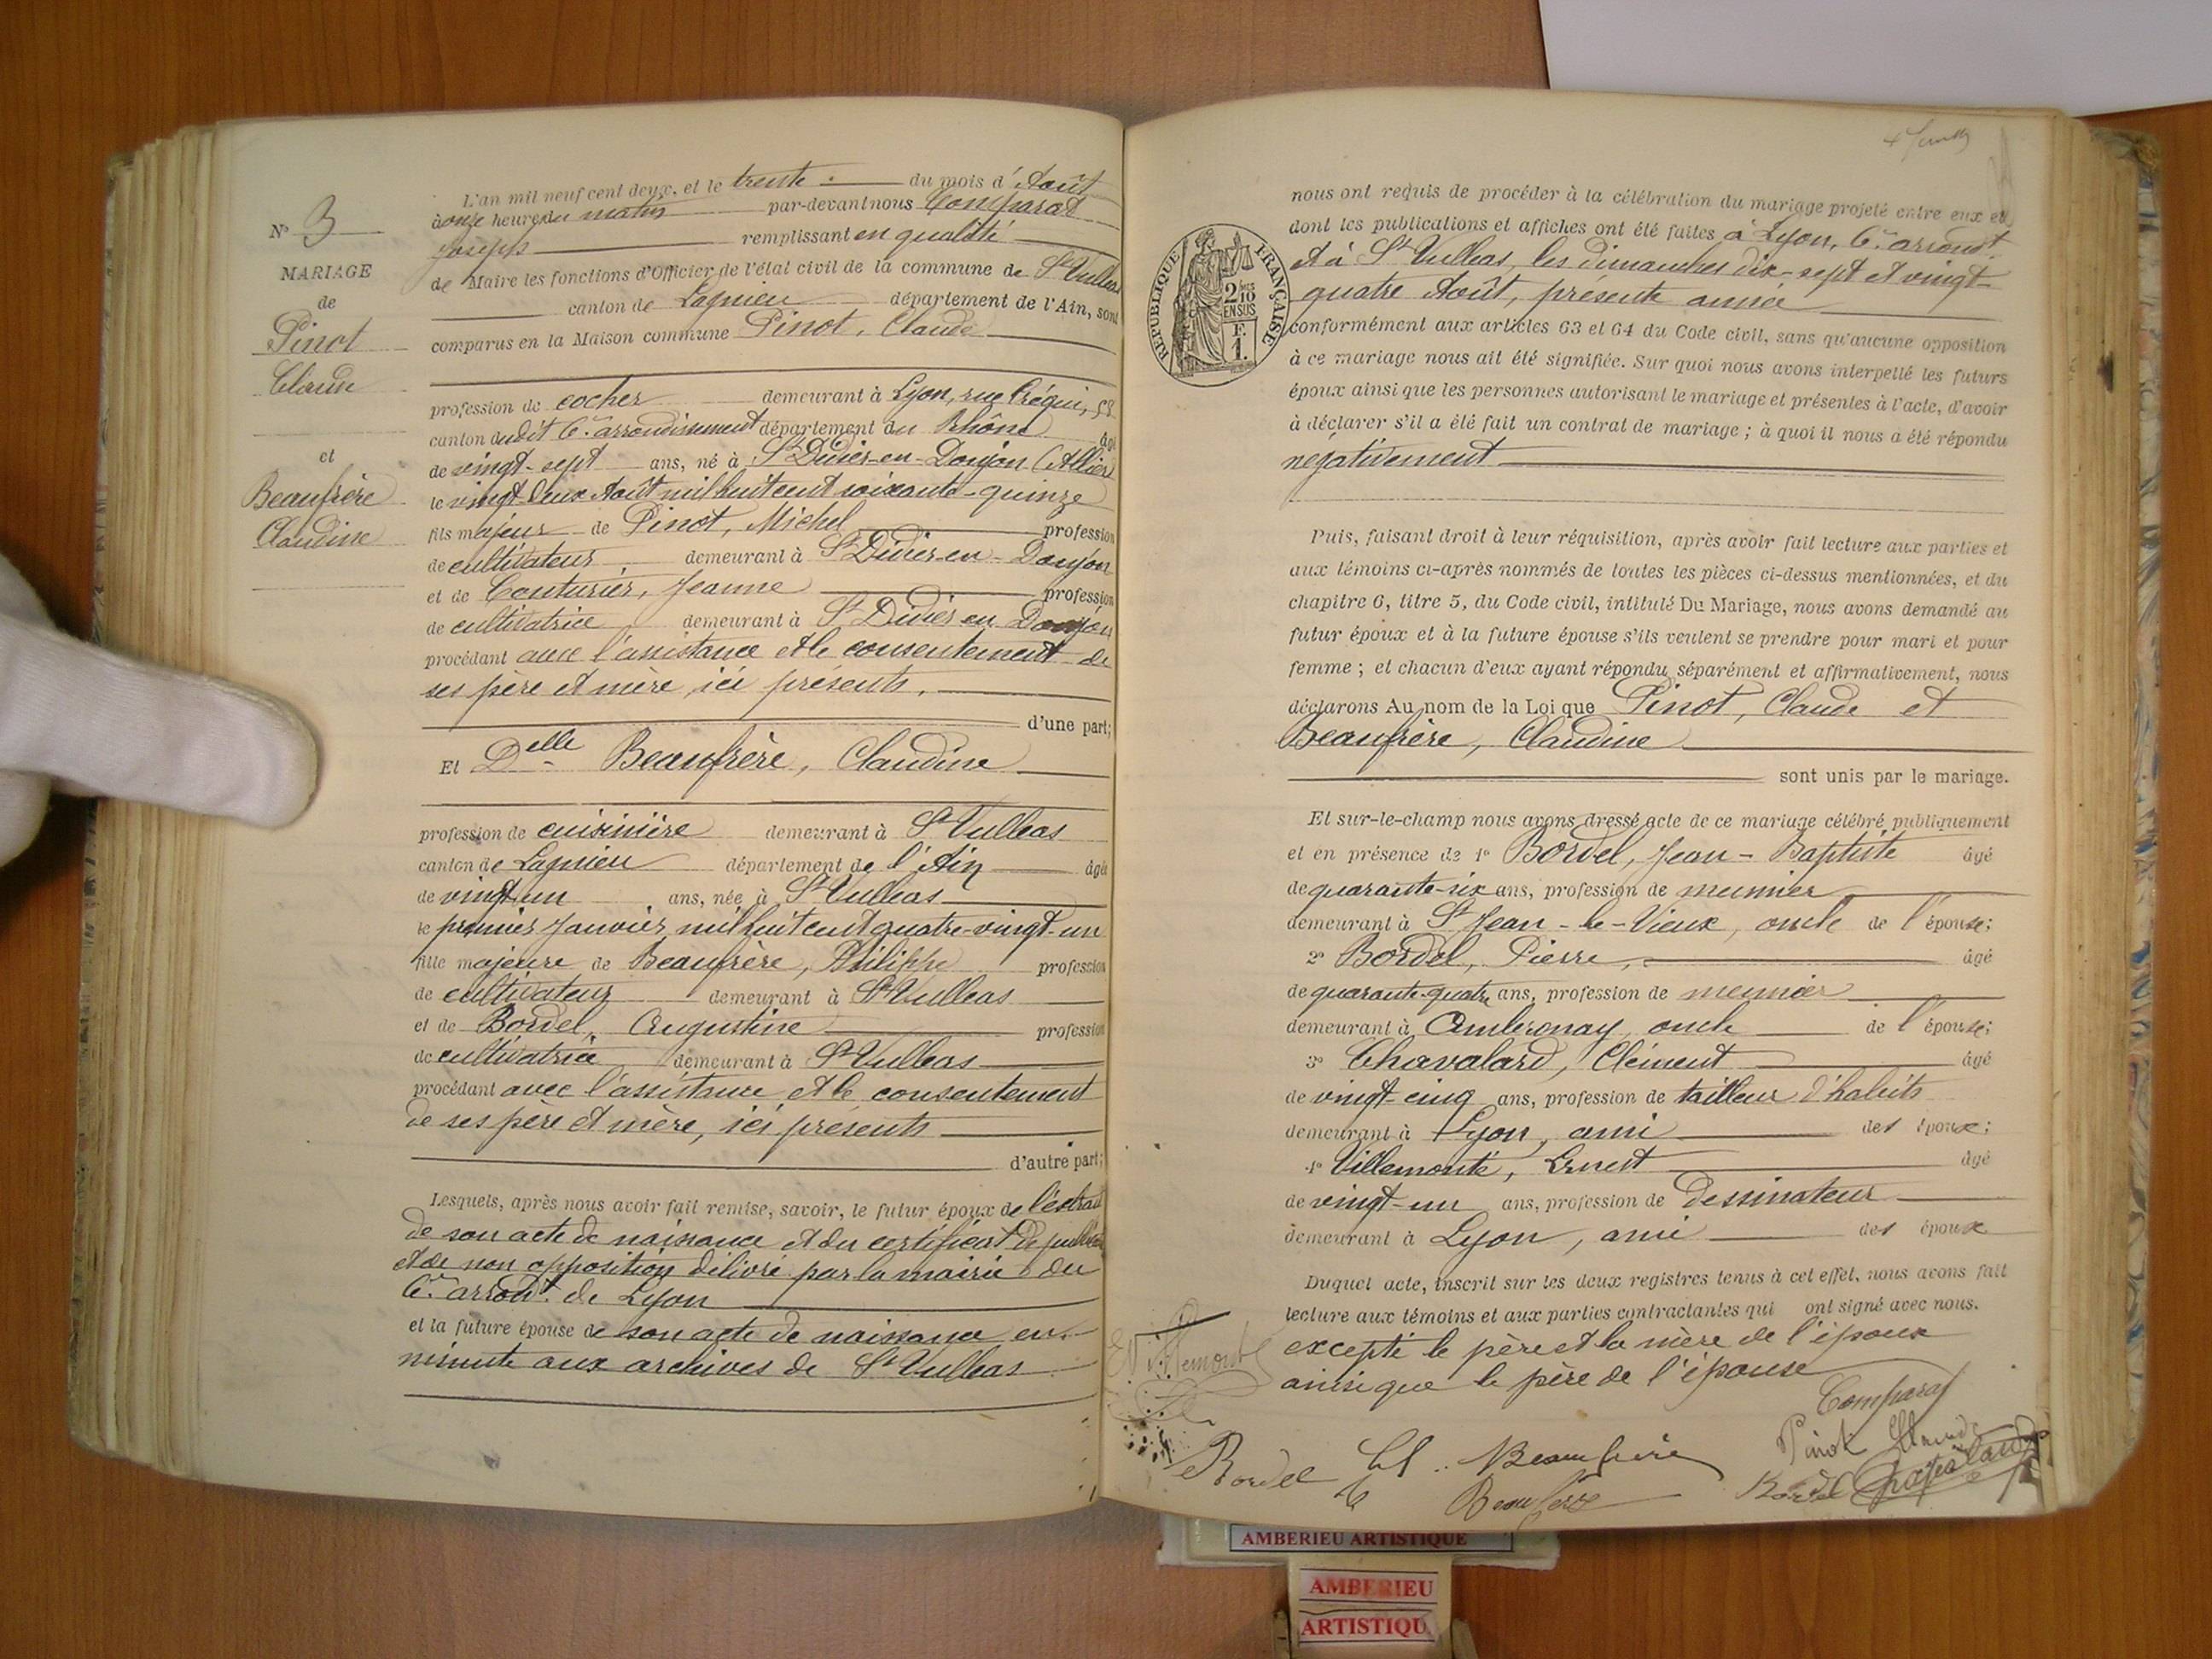 N° 3
MARIAGE
de
Pinot
Claude
et
Beaufrère
Claudine
L'an mil neuf cent deux, et le trente du mois d'Août
à onze heures du matin par-devant nous Comparat
Joseph remplissant en qualité
de Maire les fonctions d'Officier de l'état civil de la commune de St Vulbas
canton de Lagnieu département de l'Ain, sont
comparus en la Maison commune Pinot, Claude
profession de cocher demeurant à Lyon, rue Créqui, 58
canton dudit 6e arrondissement département du Rhône âgé
de vingt-sept ans, né à St Didier-en-Donjon (Allier)
le vingt-deux Août mil huit cent soixante-quinze
fils majeur de Pinot, Michel profession
de cultivateur demeurant à St Didier-en-Donjon
et de Couturier, Jeanne profession
de cultivatrice demeurant à St Didier en Donjon
procédant avec l'assistance et le consentement de
ses père et mère, ici présents.
d'une part;
Et Delle Beaufrère, Claudine
profession de cuisinière demeurant à St Vulbas
canton de Lagnieu département de l'Ain âgée
de vingt un ans, née à St Vulbas
le premier Janvier mil huit cent quatre-vingt-un
fille majeure de Beaufrère, Philippe profession
de cultivateur demeurant à St Vulbas
et de Bordel, Augustine profession
de cultivatrice demeurant à St Vulbas
procédant avec l'assistance et le consentement
de ses père et mère, ici présents
d'autre part;
Lesquels, après nous avoir fait remise, savoir, le futur époux de l'extrait
de son acte de naissance et du certificat de
et de non opposition délivré par la mairie du
6e arrondt de Lyon
et la future épouse de son acte de naissance en
minute aux archives de St Vulbas
nous ont requis de procéder à la célébration du mariage projeté entre eux et
dont les publications et affiches ont été faites à Lyon, 6e arrondt
et à St Vulbas, les dimanches dix-sept et vingt-
quatre Août, présente année
RÉPUBLIQUE FRANÇAISE
2/10 EN SUS
F. 1.
conformément aux articles 63 et 64 du Code civil, sans qu'aucune opposition
à ce mariage nous ait été signifiée. Sur quoi nous avons interpellé les futurs
époux ainsi que les personnes autorisant le mariage et présentes à l'acte, d'avoir
à déclarer s'il a été fait un contrat de mariage ; à quoi il nous a été répondu
négativement
Puis, faisant droit à leur réquisition, après avoir fait lecture aux parties et
aux témoins ci-après nommés de toutes les pièces ci-dessus mentionnées, et du
chapitre 6, titre 5, du Code civil, intitulé Du Mariage, nous avons demandé au
futur époux et à la future épouse s'ils veulent se prendre pour mari et pour
femme ; et chacun d'eux ayant répondu séparément et affirmativement, nous
déclarons Au nom de la Loi que Pinot, Claude et
Beaufrère, Claudine
sont unis par le mariage.
Et sur-le-champ nous avons dressé acte de ce mariage célébré publiquement
et en présence de 1° Bordel, Jean-Baptiste âgé
de quarante-six ans, profession de meunier
demeurant à St Jean-le-Vieux, oncle de l'épouse;
2° Bordel, Pierre, âgé
de quarante-quatre ans, profession de meunier
demeurant à Ambronay, oncle de l'épouse;
3° Chavalard, Clément âgé
de vingt-cinq ans, profession de tailleur d'habits
demeurant à Lyon, ami des époux;
4° Villemonté, Ernest âgé
de vingt-un ans, profession de dessinateur
demeurant à Lyon, ami des époux
Duquel acte, inscrit sur les deux registres tenus à cet effet, nous avons fait
lecture aux témoins et aux parties contractantes qui ont signé avec nous.
excepté le père et la mère de l'époux
ainsi que le père de l'épouse
Comparat
E Villemonté
Pinot Claude
Bordel Cl. Beaufrère
Bordel Chavalard
Beaufrère
AMBERIEU ARTISTIQUE
AMBERIEU
ARTISTIQU